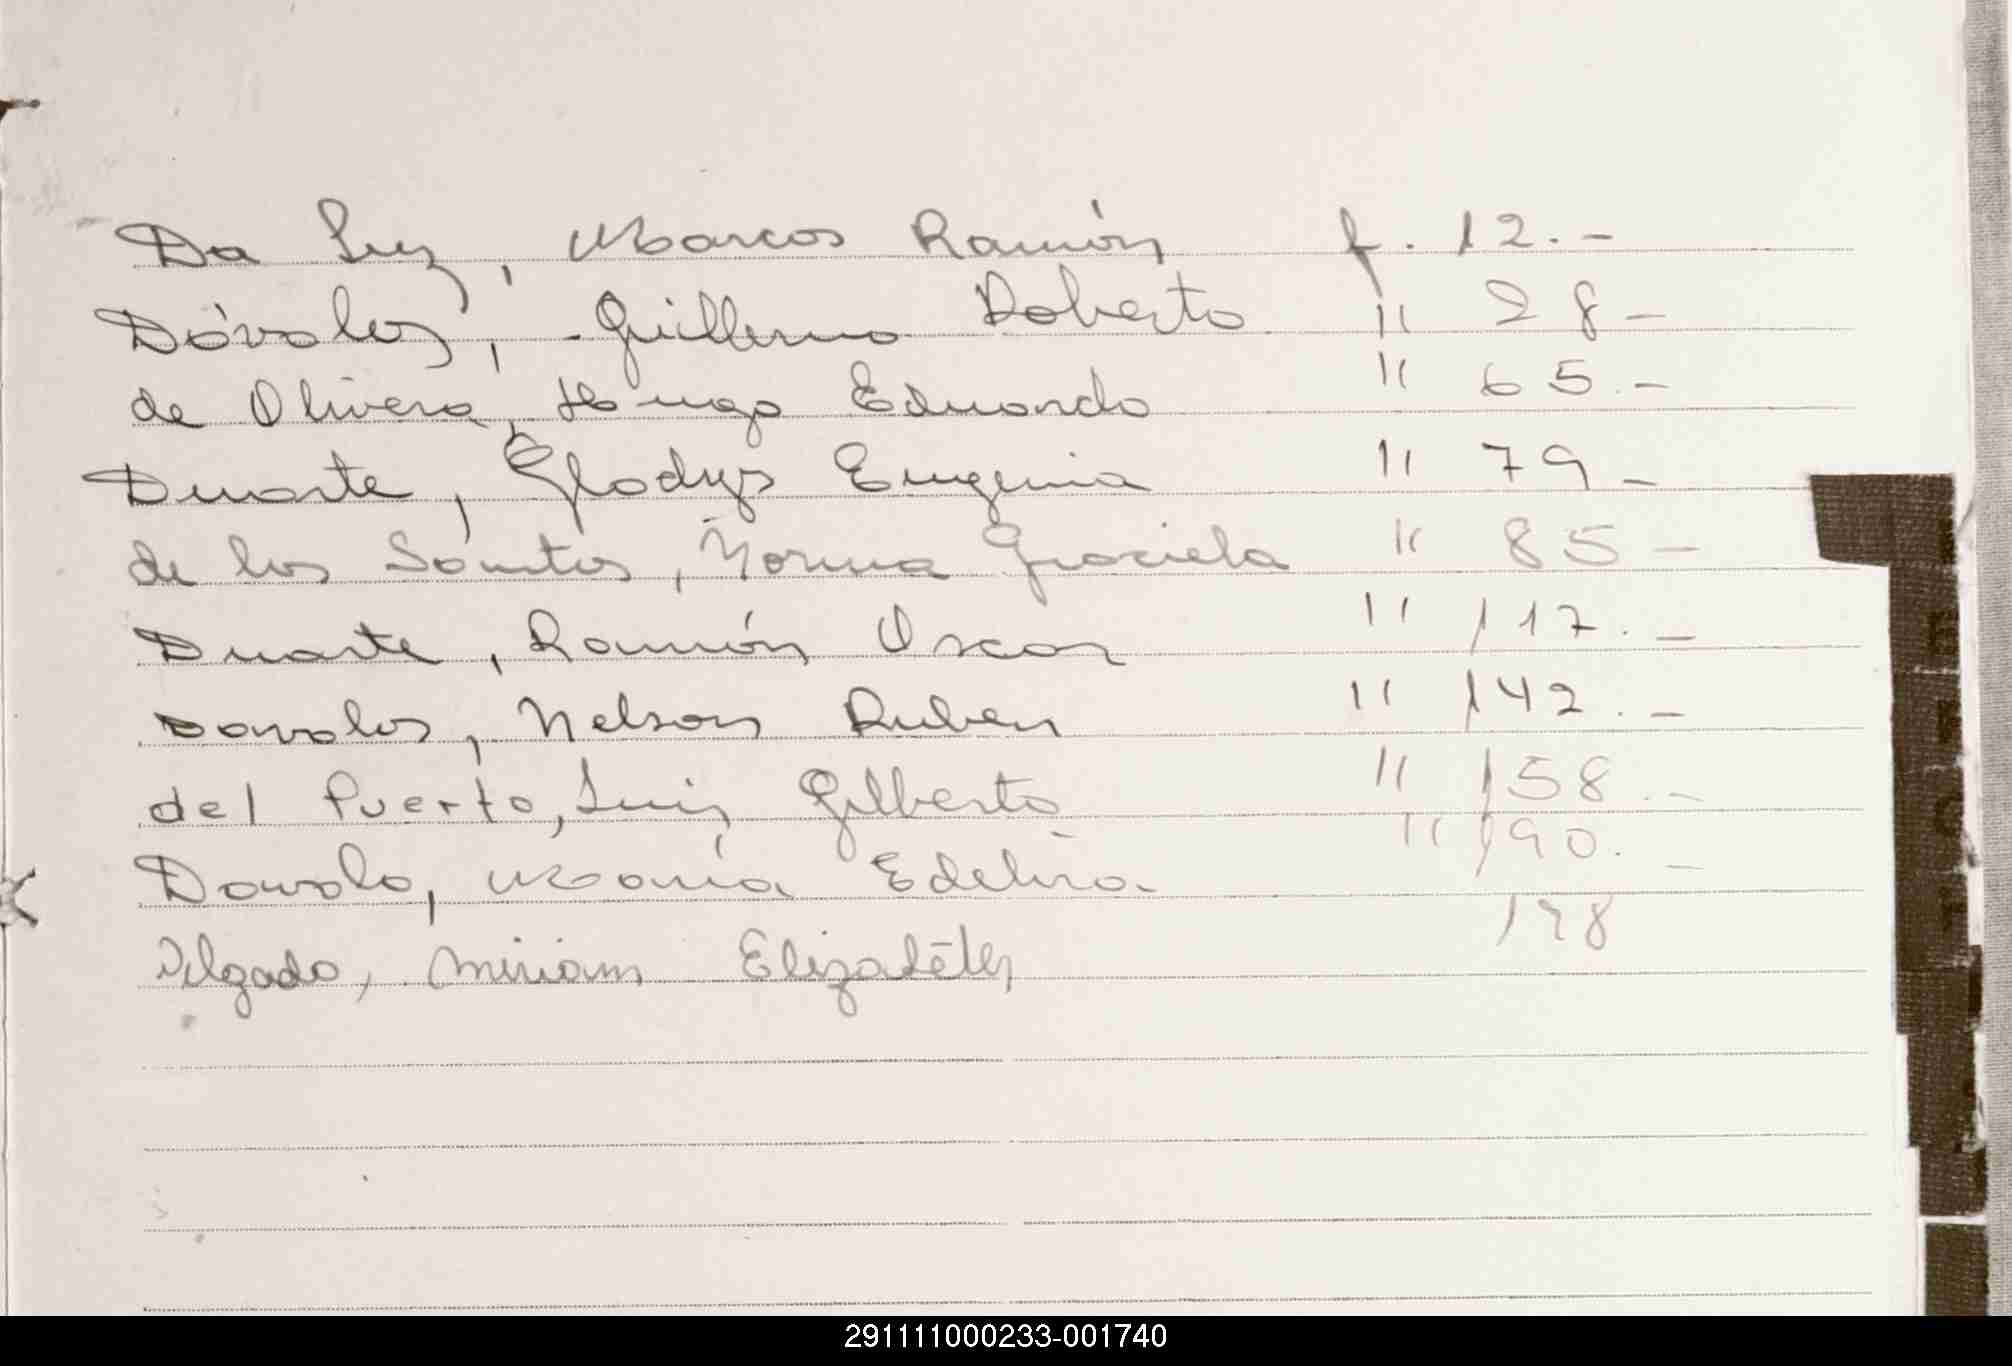 Da Luz, Marcos Ramón f. 12.-
Dávalos, Guillermo Roberto " 28-
de Olivera, Hugo Eduardo " 65.-
Duarte, Gladys Eugenia " 79-
de los Santos, Norma Graciela " 85-
Duarte, Ramón Oscar " 117.-
Davalos, Nelson Ruben " 142.-
del Puerto, Luis Gilberto " 158.-
María " 190.-
Delgado, Miriam Elizabeth 198
291111000233-001740